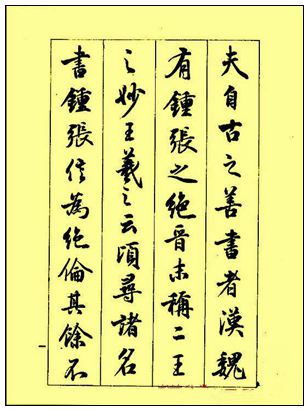 夫自古之善書者漢魏
有鍾張之絕晉末稱二王
之妙王羲之云頃尋諸名
書鍾張信為絕倫其餘不